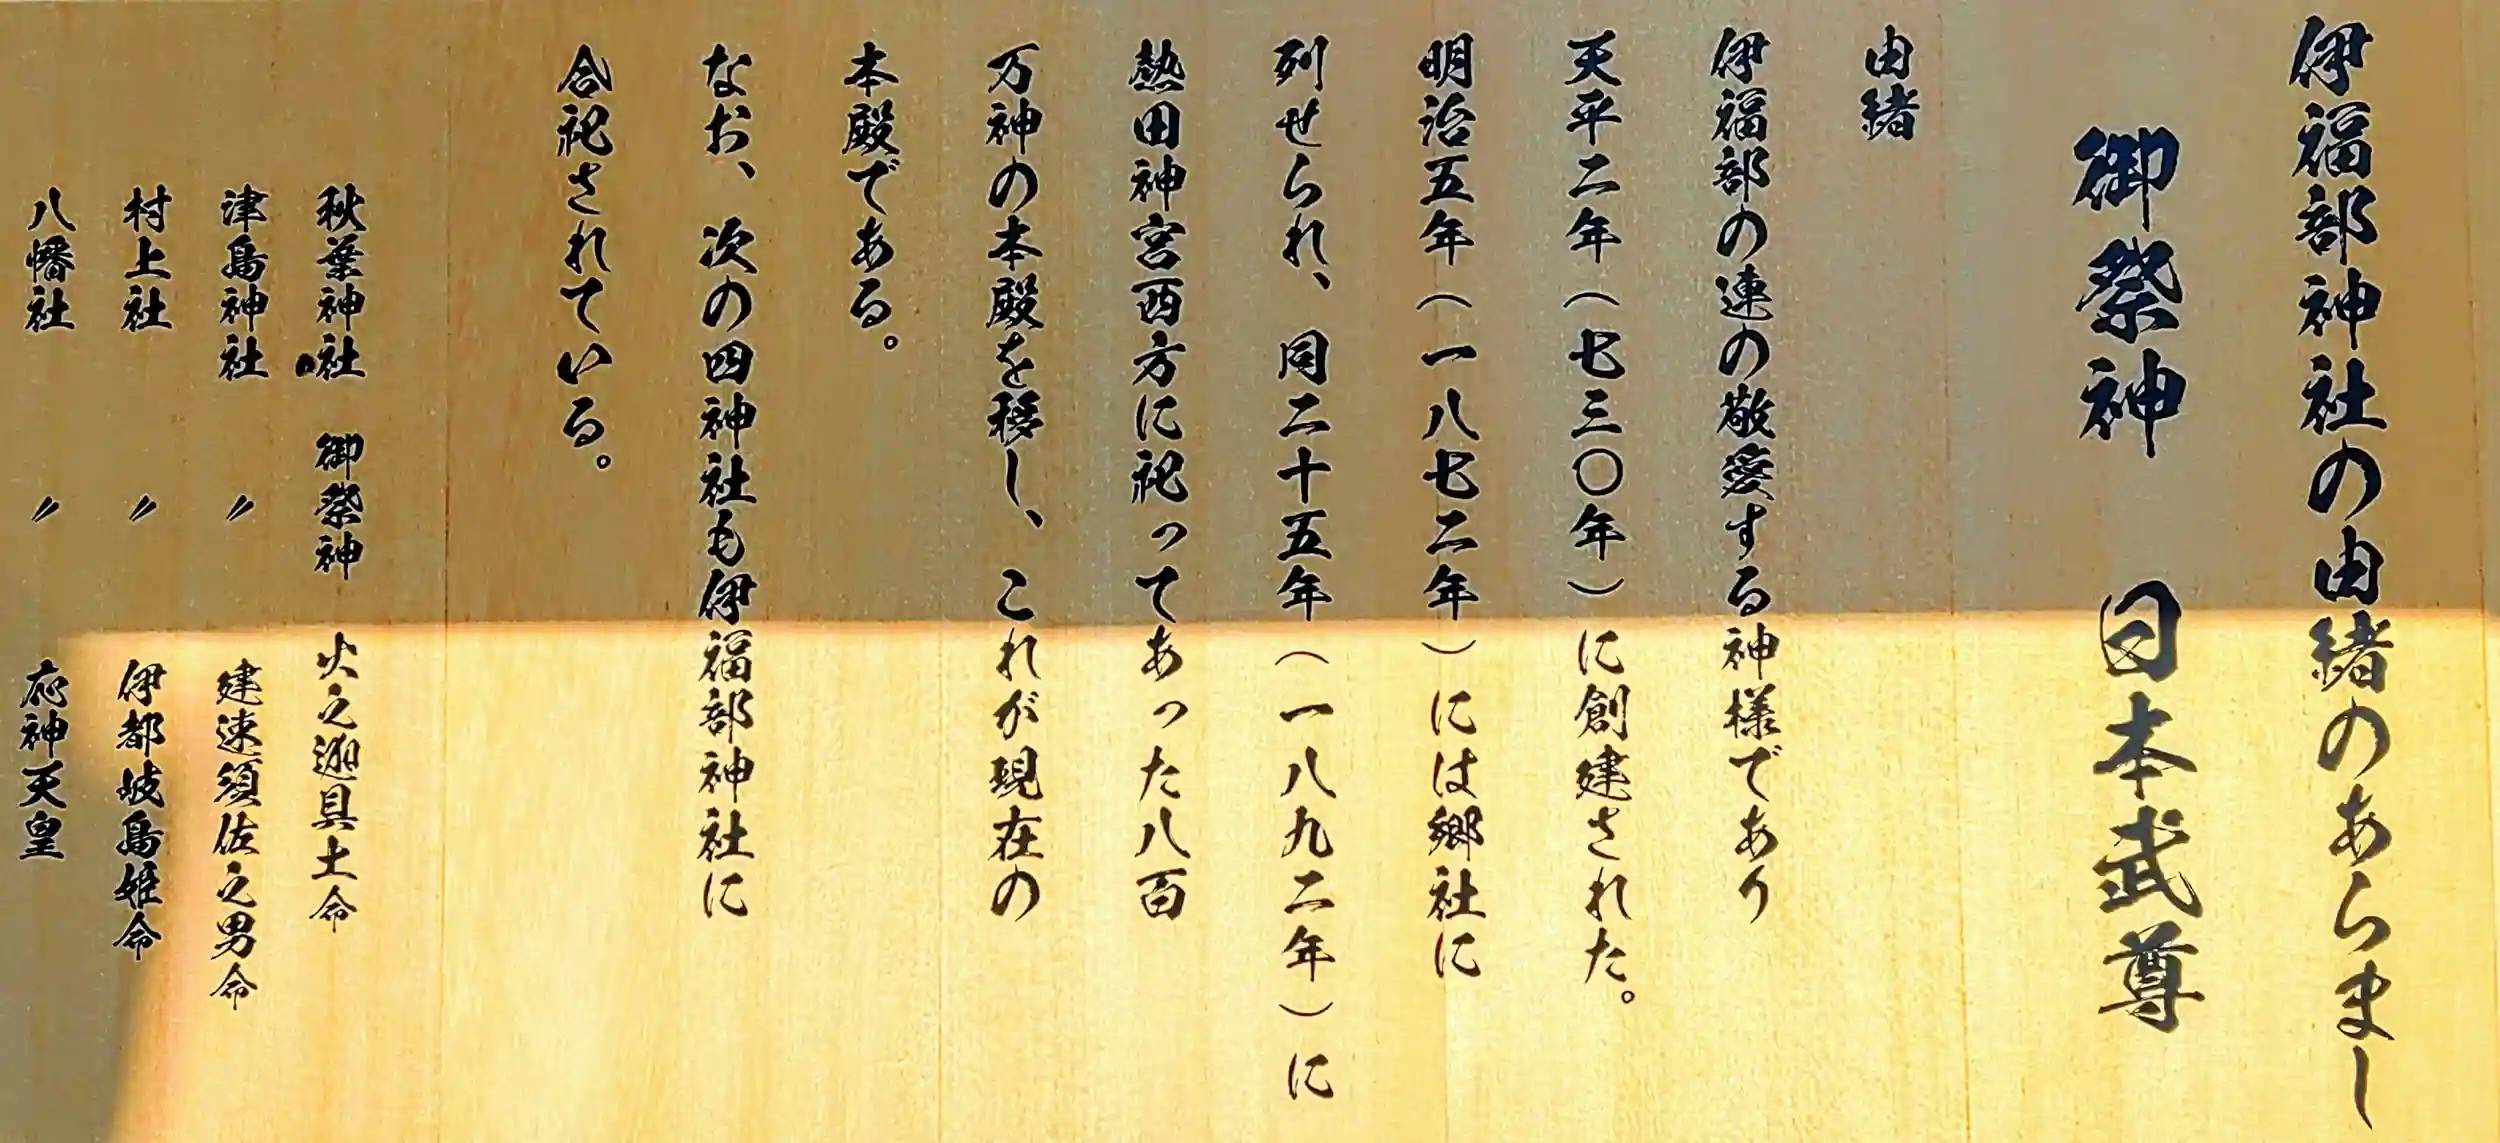 伊福部神社の由緒のあらまし
御祭神　日本武尊
由緒
伊福部の連の敬愛する神様であり
天平二年（七三〇年）に創建された。
明治五年（一八七二年）には郷社に
列せられ、同二十五年（一八九二年）に
熱田神宮西方に祀ってあった八百
万神の本殿を移し、これが現在の
本殿である。
なお、次の四神社も伊福部神社に
合祀されている。
秋葉神社　御祭神　火之迦具土命
津島神社　〃　建速須佐之男命
村上社　〃　伊都岐島姫命
八幡社　〃　応神天皇